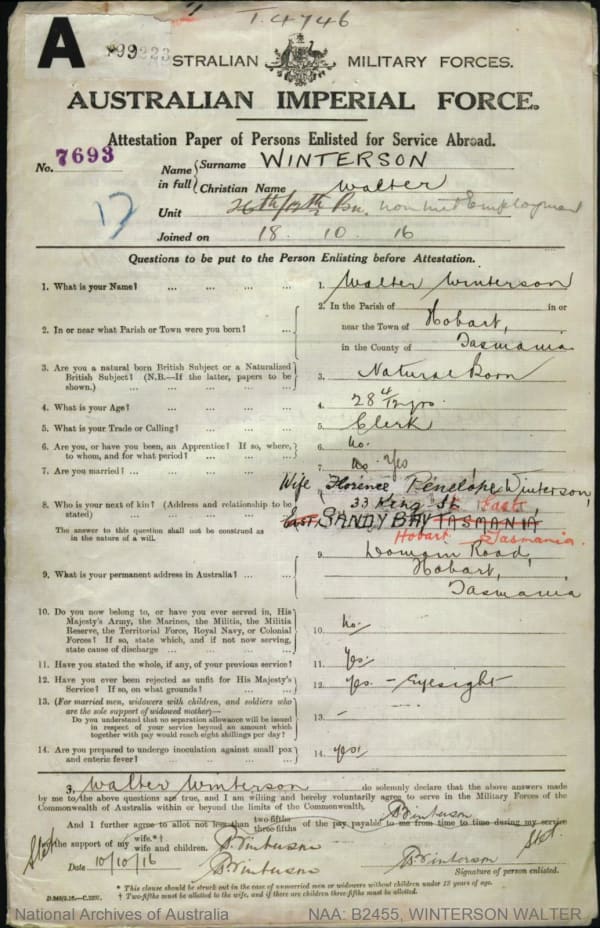 T.4746
A
99223
AUSTRALIAN MILITARY FORCES.
AUSTRALIAN IMPERIAL FORCE.
Attestation Paper of Persons Enlisted for Service Abroad.
No. 7693
Name in full
Surname WINTERSON
Christian Name Walter
Unit 26th/12th Bn. Employment
17
Joined on 18. 10. 16
Questions to be put to the Person Enlisting before Attestation.
1. What is your Name? ... ... ... ... 1. Walter Winterson
2. In or near what Parish or Town were you born? ... 2. In the Parish of in or
near the Town of Hobart,
in the County of Tasmania
3. Are you a natural born British Subject or a Naturalized
British Subject? (N.B.—If the latter, papers to be
shown.) ... ... ... ... 3. Natural Born
4. What is your Age? ... ... ... ... 4. 28 4/12 yrs.
5. What is your Trade or Calling? ... ... ... 5. Clerk
6. Are you, or have you been, an Apprentice? If so, where,
to whom, and for what period? ... ... ... 6. No.
7. Are you married? ... ... ... ... 7. No Yes
Wife Florence Penelope Winterson,
8. Who is your next of kin? (Address and relationship to be
stated) ... ... ... 33 King St
SANDY BAY TASMANIA
Hobart Tasmania.
The answer to this question shall not be construed as
in the nature of a will.
9. What is your permanent address in Australia? ... ... 9. Domain Road,
Hobart,
Tasmania
10. Do you now belong to, or have you ever served in, His
Majesty's Army, the Marines, the Militia, the Militia
Reserve, the Territorial Force, Royal Navy, or Colonial
Forces? If so, state which, and if not now serving,
state cause of discharge ... ... ... 10. No.
11. Have you stated the whole, if any, of your previous service? 11. Yes.
12. Have you ever been rejected as unfit for His Majesty's
Service? If so, on what grounds? ... ... 12. Yes. - Eyesight
13. (For married men, widowers with children, and soldiers who
are the sole support of widowed mother)—
Do you understand that no separation allowance will be issued
in respect of your service beyond an amount which
together with pay would reach eight shillings per day? 13. -
14. Are you prepared to undergo inoculation against small pox
and enteric fever? ... ... ... ... 14. Yes.
I, Walter Winterson do solemnly declare that the above answers made
by me to the above questions are true, and I am willing and hereby voluntarily agree to serve in the Military Forces of the
Commonwealth of Australia within or beyond the limits of the Commonwealth.
And I further agree to allot not less than two-fifths three-fifths of the pay payable to me from time to time during my service
for the support of my wife.*† wife and children.
Stet
Stet.
Date 10/10/16
Signature of person enlisted.
* This clause should be struck out in the case of unmarried men or widowers without children under 18 years of age.
† Two-fifths must be allotted to the wife, and if there are children three-fifths must be allotted.
National Archives of Australia
NAA: B2455, WINTERSON WALTER